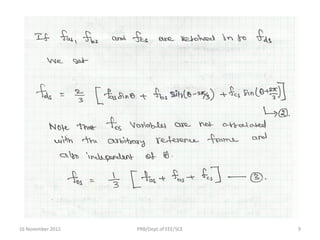 If fas, fbs and fcs are resolved in to fds
We get
fds = 2/3 [ fas sinθ + fbs sin(θ-2π/3) + fcs sin(θ+2π/3) ]
→ ②.
Note that fos variables are not associated
with the arbitrary reference frame and
also independent of θ.
fos = 1/3 [ fas + fbs + fcs ] — ③.
16 November 2012 PRB/Dept of EEE/SCE 9